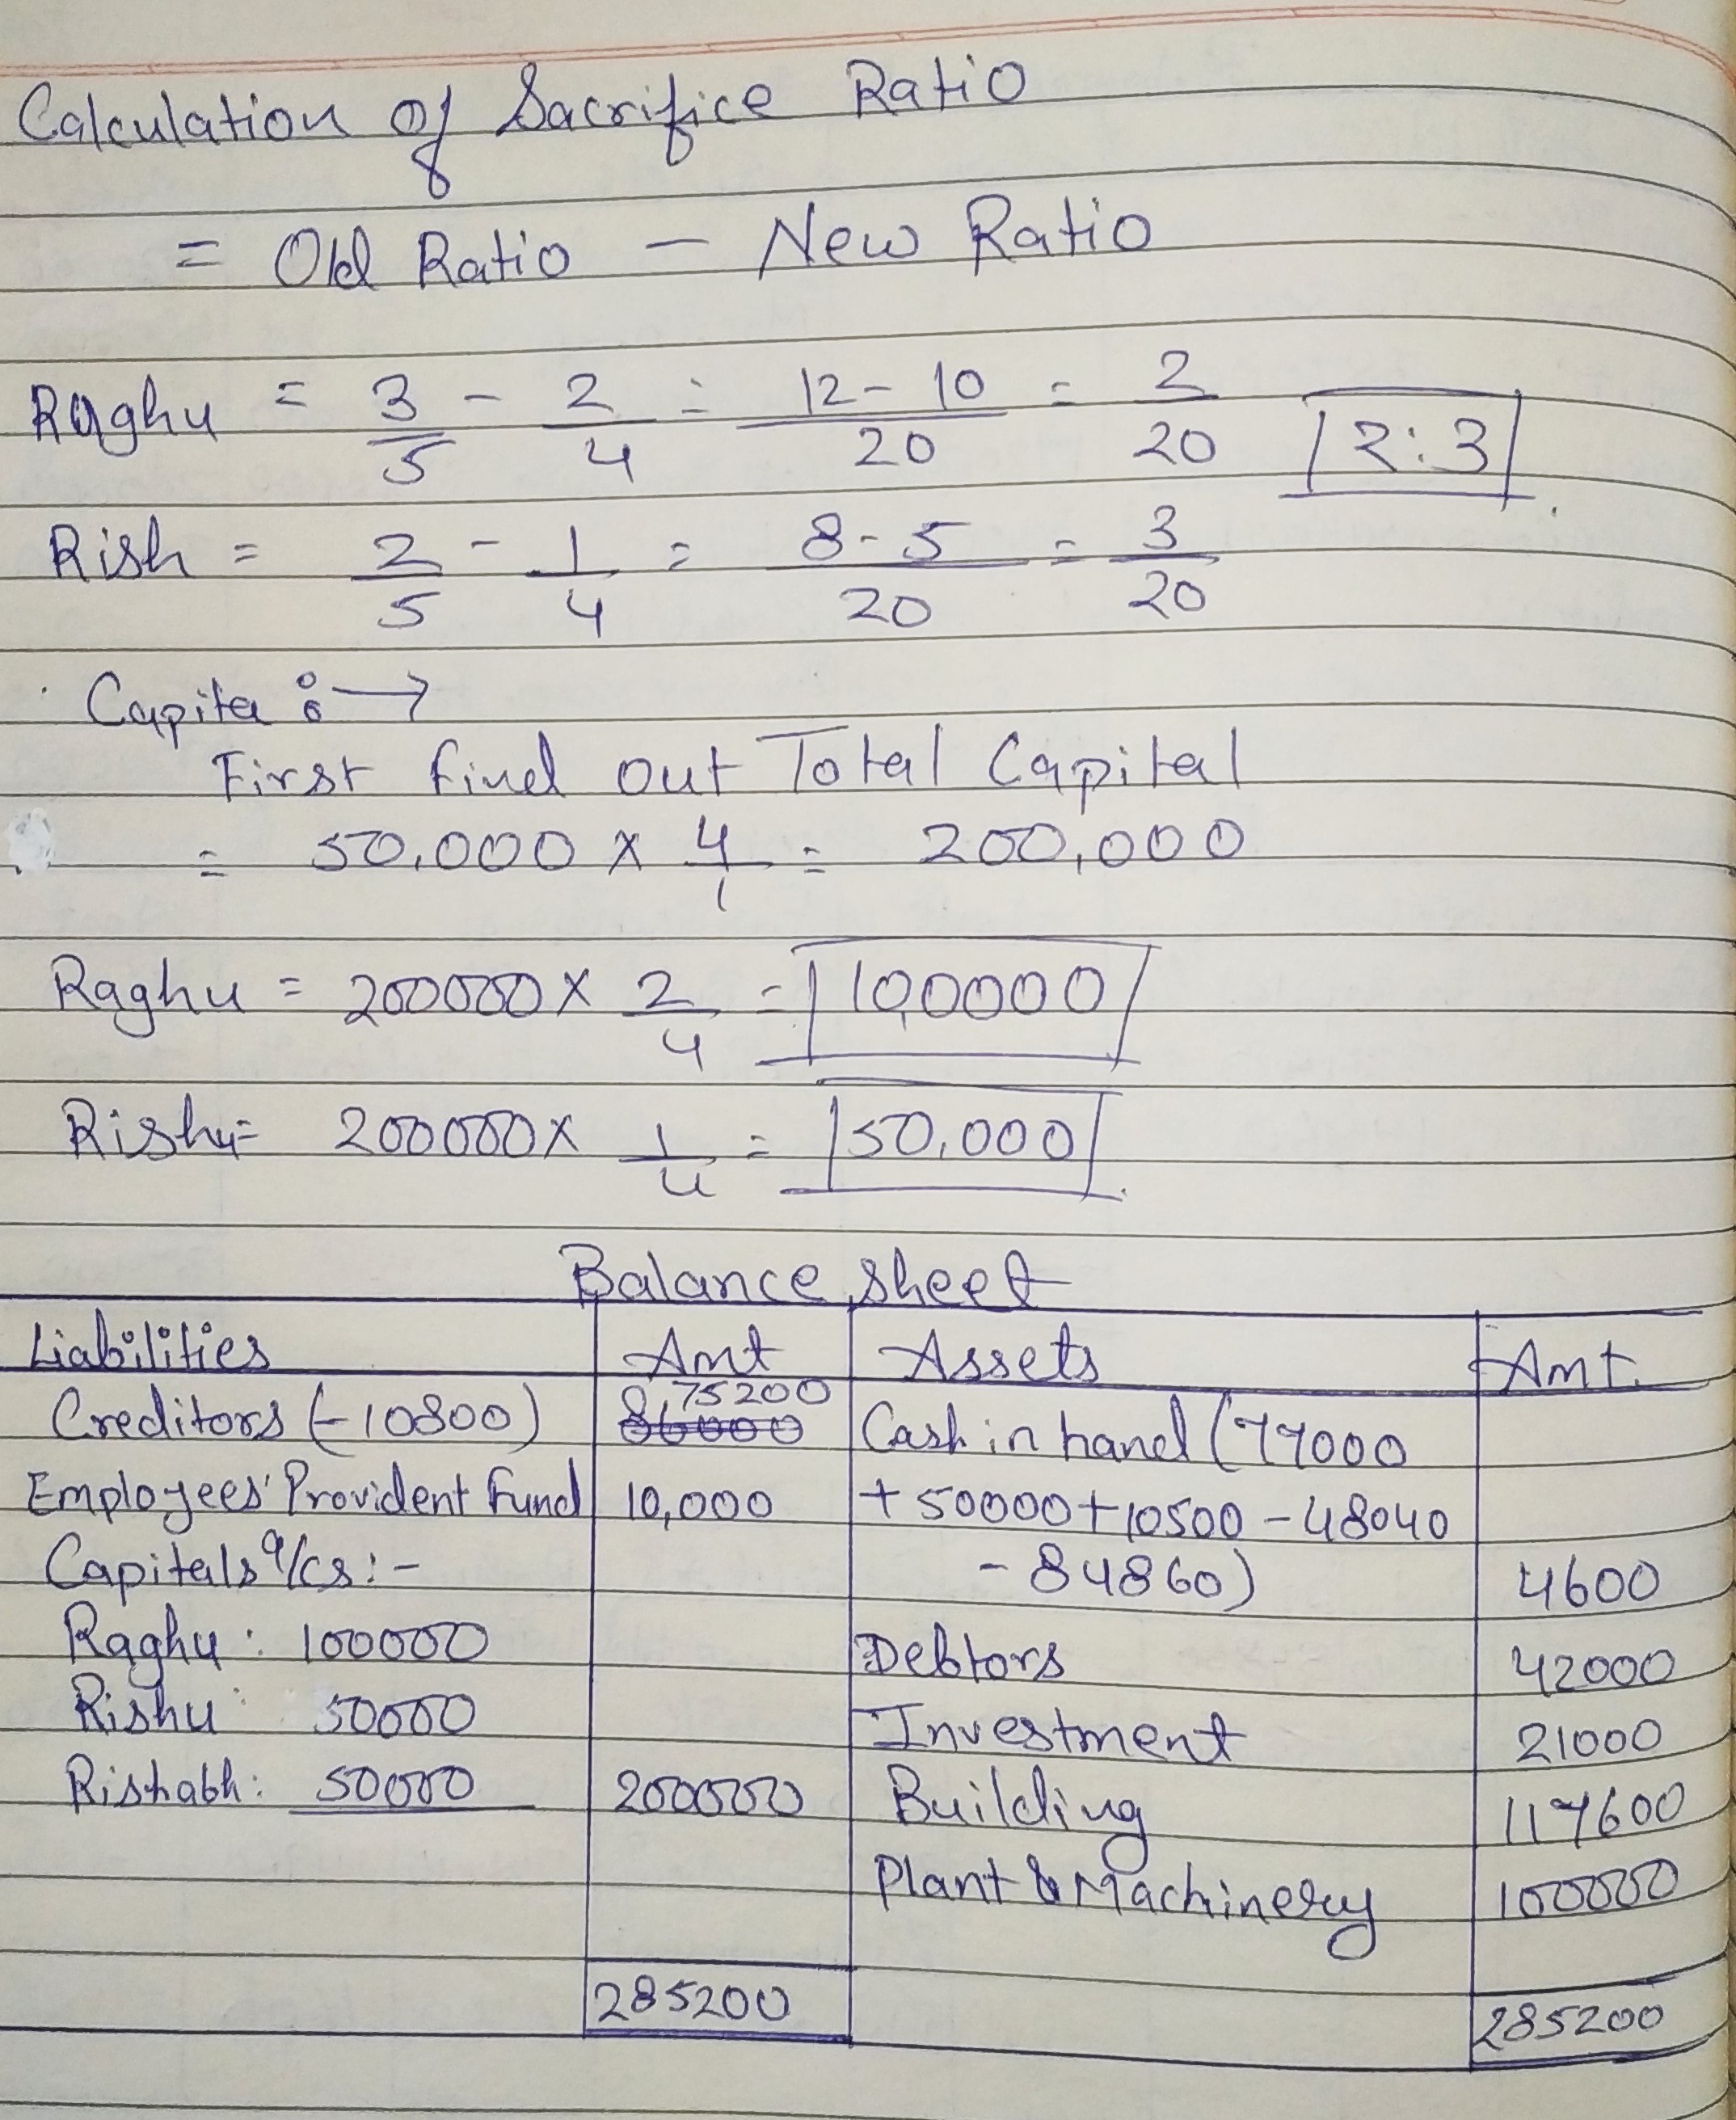 Calculation of Sacrifice Ratio
= Old Ratio - New Ratio
Raghu = 3/5 - 2/4 = 12-10/20 = 2/20 2:3
Rish = 2/5 - 1/4 = 8-5/20 = 3/20
Capita :→
First find out Total Capital
= 50,000 x 4/1 = 200,000
Raghu = 200000 x 2/4 = 100000
Rishu = 200000 x 1/4 = 50,000
Balance sheet
Liabilities Amt Assets Amt.
Creditors (-10800) 86000 75200 Cash in hand (77000
Employees' Provident fund 10,000 + 50000 + 10500 - 48040
Capitals a/cs:- - 84860) 4600
Raghu : 100000 Debtors 42000
Rishu : 50000 Investment 21000
Rishabh : 50000 200000 Building 117600
Plant & Machinery 100000
285200 285200